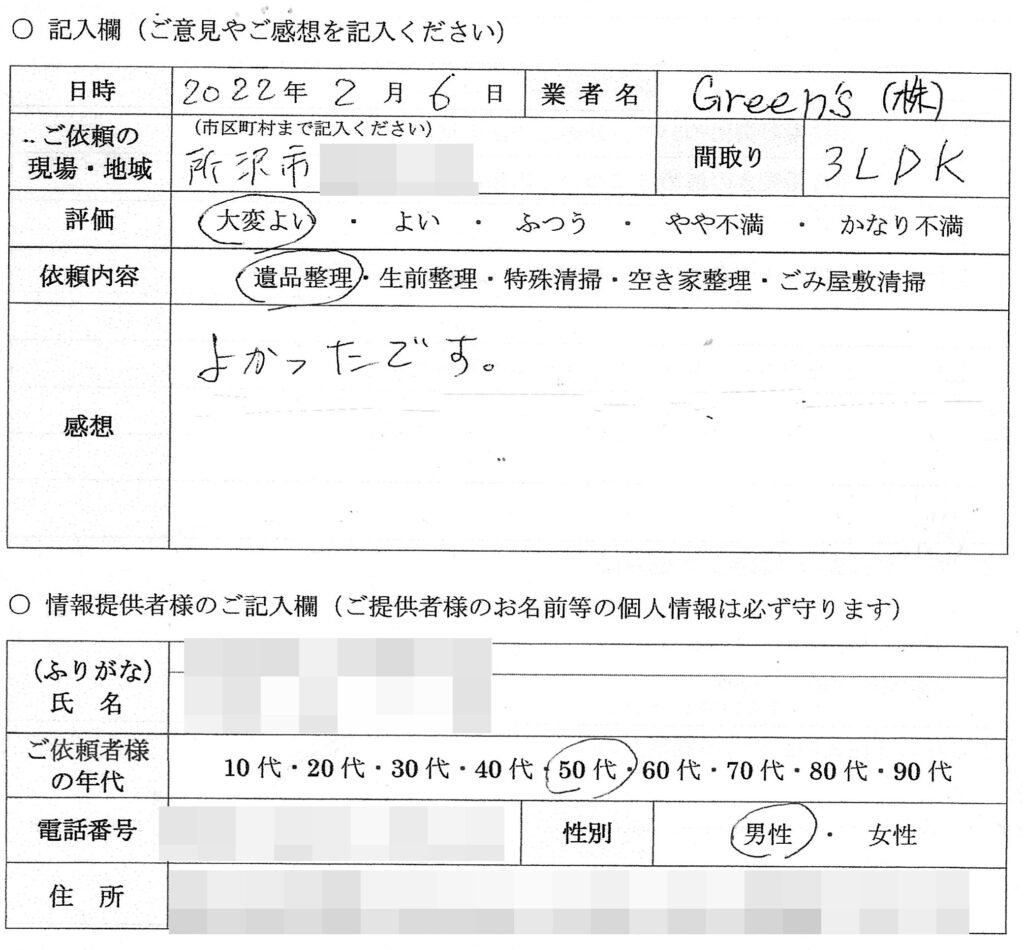 ○ 記入欄（ご意見やご感想を記入ください）
日時 2022年 2月 6日 業者名 Green's (株)
ご依頼の現場・地域 （市区町村まで記入ください） 所沢市 間取り 3LDK
評価 大変よい ・ よい ・ ふつう ・ やや不満 ・ かなり不満
依頼内容 遺品整理・生前整理・特殊清掃・空き家整理・ごみ屋敷清掃
感想 よかったです。
○ 情報提供者様のご記入欄（ご提供者様のお名前等の個人情報は必ず守ります）
（ふりがな）
氏 名
ご依頼者様の年代 10代・20代・30代・40代・50代・60代・70代・80代・90代
電話番号 性別 男性 ・ 女性
住 所